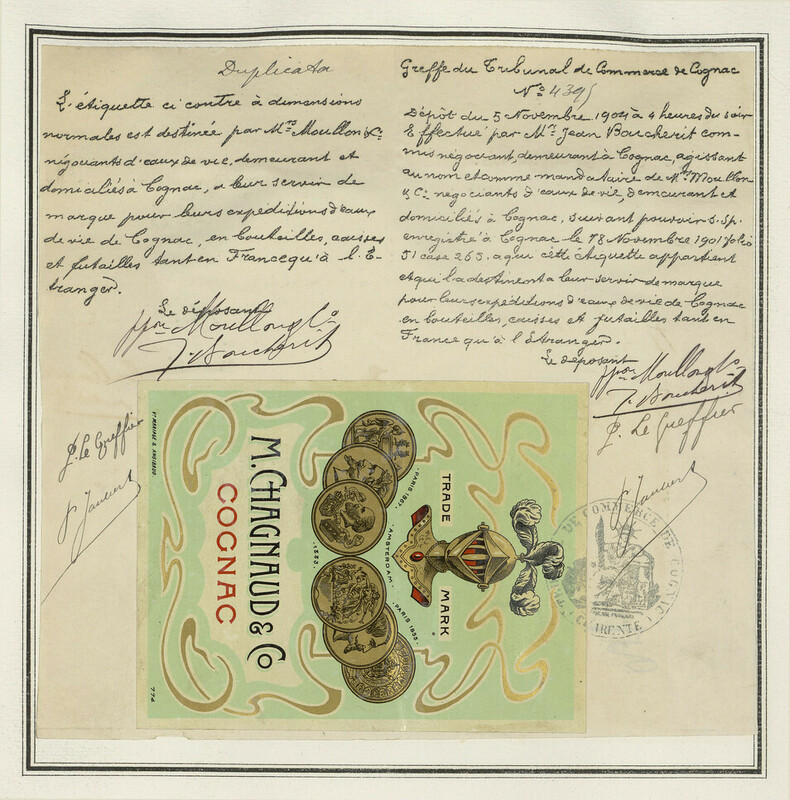 Duplicata
L'étiquette ci contre à dimensions
normales est destinée par Mrs Moullon & Co
négociants d'eaux de vie, demeurant et
domiciliés à Cognac, a leur servir de
marque pour leurs expéditions d'eaux
de vie de Cognac, en bouteilles, caisses
et futailles tant en France qu'à l'É-
tranger.
Le déposant
ppon Moullon & Co
J. Boucherit
P. Le Greffier
Greffe du Tribunal de Commerce de Cognac
No 4395
Dépôt du 5 Novembre 1904 à 4 heures du soir
Effectué par Mr Jean Boucherit com-
mis négociant, demeurant à Cognac, agissant
au nom et comme mandataire de Mrs Moullon
& Co négociants d'eaux de vie, demeurant et
domiciliés à Cognac, suivant pouvoir s. sp.
enregistré à Cognac le 18 Novembre 1901 folio
51 case 265. a qui cette étiquette appartient
et qui la destinent a leur servir de marque
pour leurs expéditions d'eaux de vie de Cognac
en bouteilles, caisses et futailles tant en
France qu'à l'Étranger.
Le déposant
ppon Moullon & Co
J. Boucherit
P. Le Greffier
TRADE MARK
PARIS 1867.
AMSTERDAM
1883.
PARIS 1855
M. CHAGNAUD & Co
COGNAC
774
DE COMMERCE DE COGNAC
CHARENTE